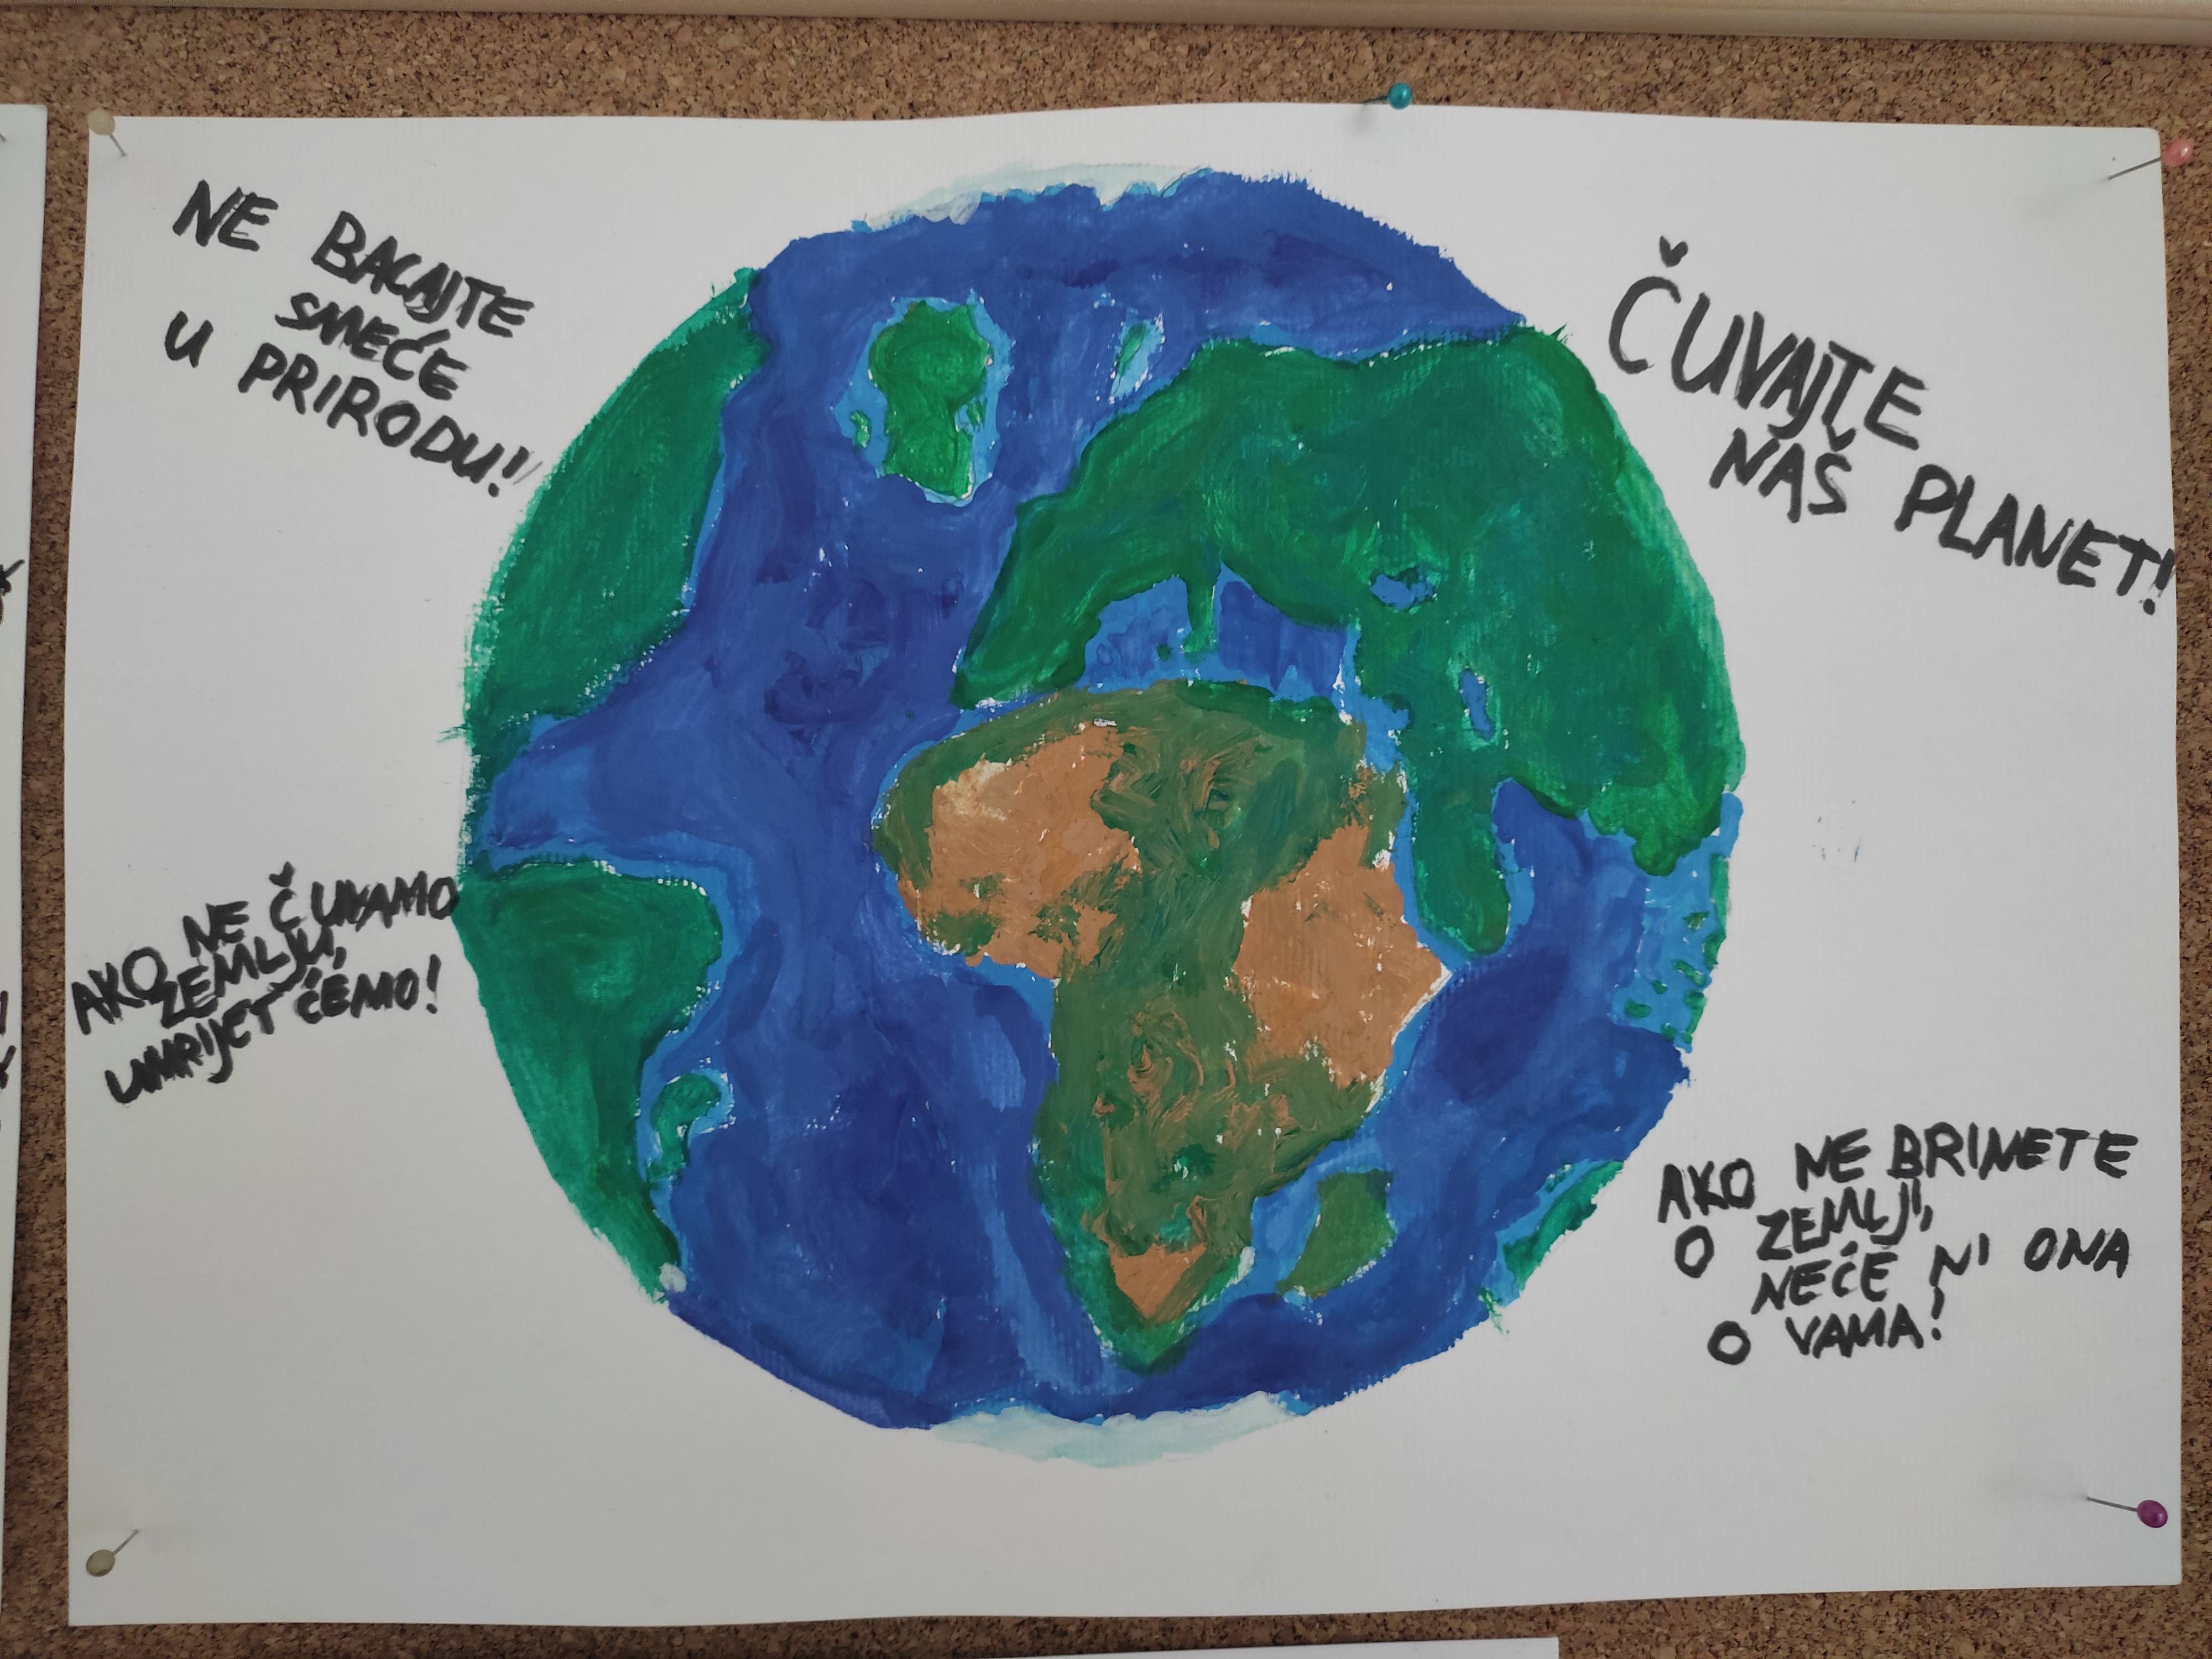 NE BACAJTE
SMEĆE
U PRIRODU!
ČUVAJTE
NAŠ PLANET!
AKO NE ČUVAMO
ZEMLJU,
UMRIJET ĆEMO!
AKO NE BRINETE
O ZEMLJI,
NEĆE NI ONA
O VAMA!